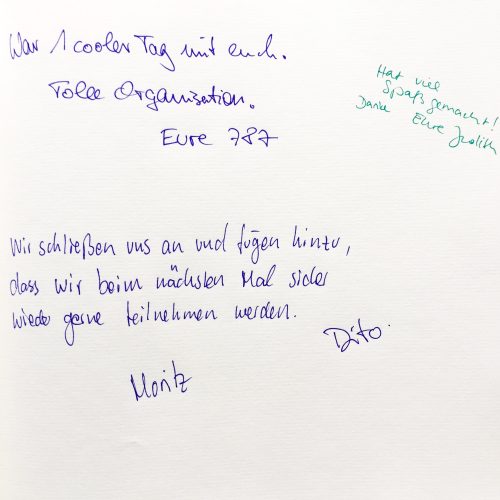 War 1 cooler Tag mit euch.
Tolle Organisation.
Eure 787
Hat viel
Spaß gemacht!
Danke Eure Judith
Wir schließen uns an und fügen hinzu,
dass wir beim nächsten Mal sicher
wieder gerne teilnehmen werden.
Dito.
Moritz